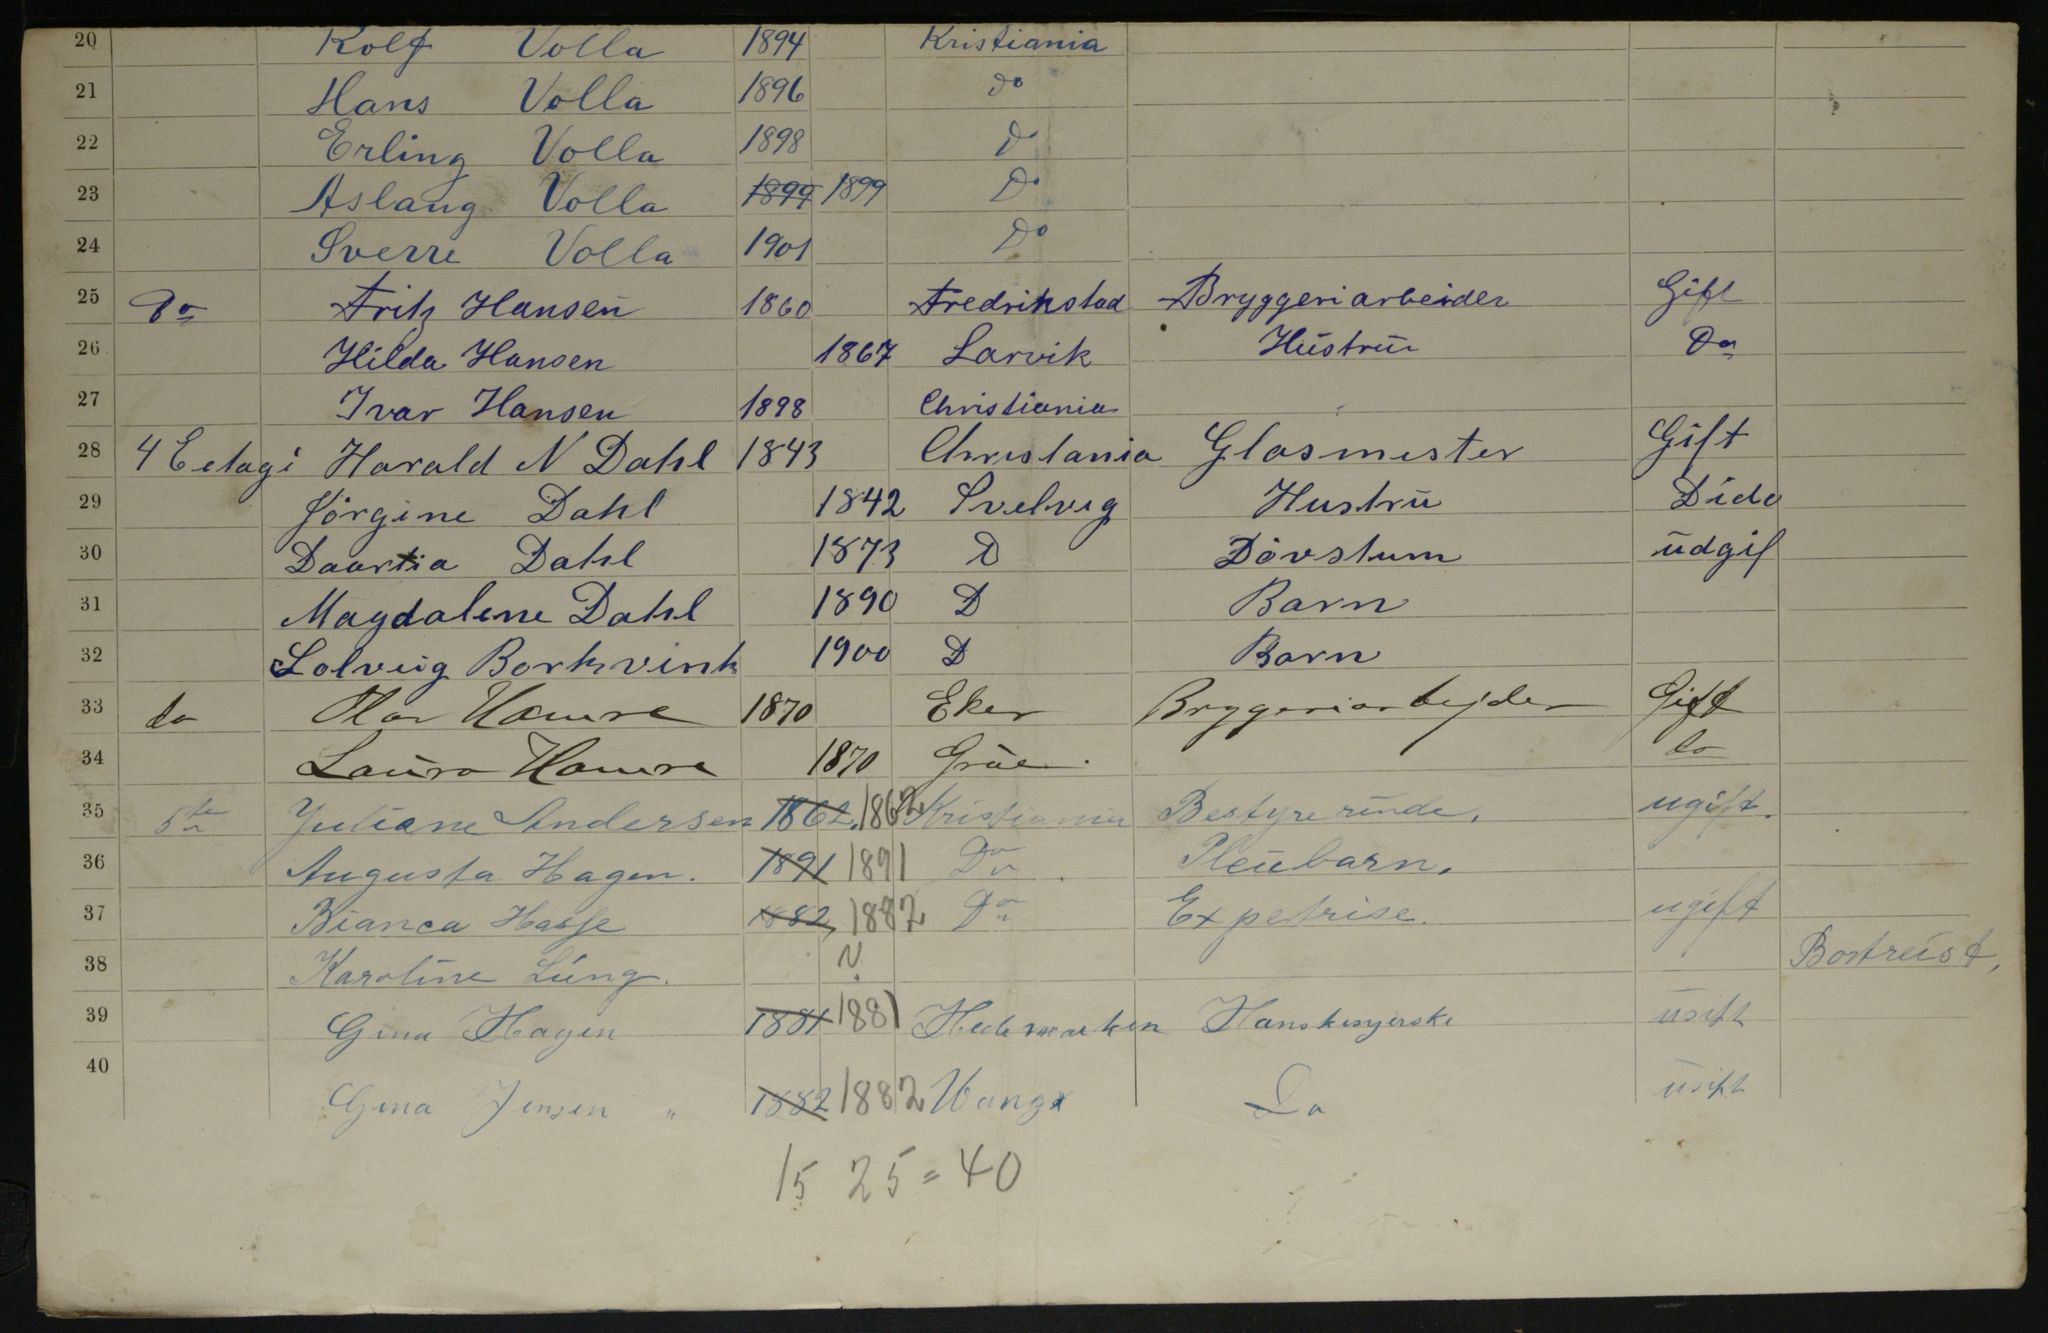 20 Rolf Volla 1894 Kristiania
21 Hans Volla 1896 Do
22 Erling Volla 1898 Do
23 Aslaug Volla 1899 1899 Do
24 Sverre Volla 1901 Do
25 Do Fritz Hansen 1860 Fredrikstad Bryggeriarbeider Gift
26 Hilda Hansen 1867 Larvik Hustru Do
27 Ivar Hansen 1898 Christiania
28 4 Eetagi Harald N Dahl 1843 Christania Glasmester Gift
29 Jörgine Dahl 1842 Svelvig Hustru Dido
30 Daartia Dahl 1873 D Dövstum udgif
31 Magdalene Dahl 1890 D Barn
32 Solveig Borkvink 1900 D Barn
33 do Olav Hamre 1870 Eker Bryggeriarbejder Gift
34 Laura Hamre 1870 Grue do
35 5te Juliane Andersen 1862. 1862 Kristiania Bestyrerinde. ugift.
36 Augusta Hagen. 1891 1891 Do. Pleiebarn.
37 Bianca Hasse 1882, 1882 Do Expetrise. ugift
38 Karoline Lung. Bortreist,
39 Gina Hagen 1881 1881 Hedemarken Hanskesyerske ugift
40 Gina Jensen " 1882 1882 Vang Do ugift
15 25 = 40